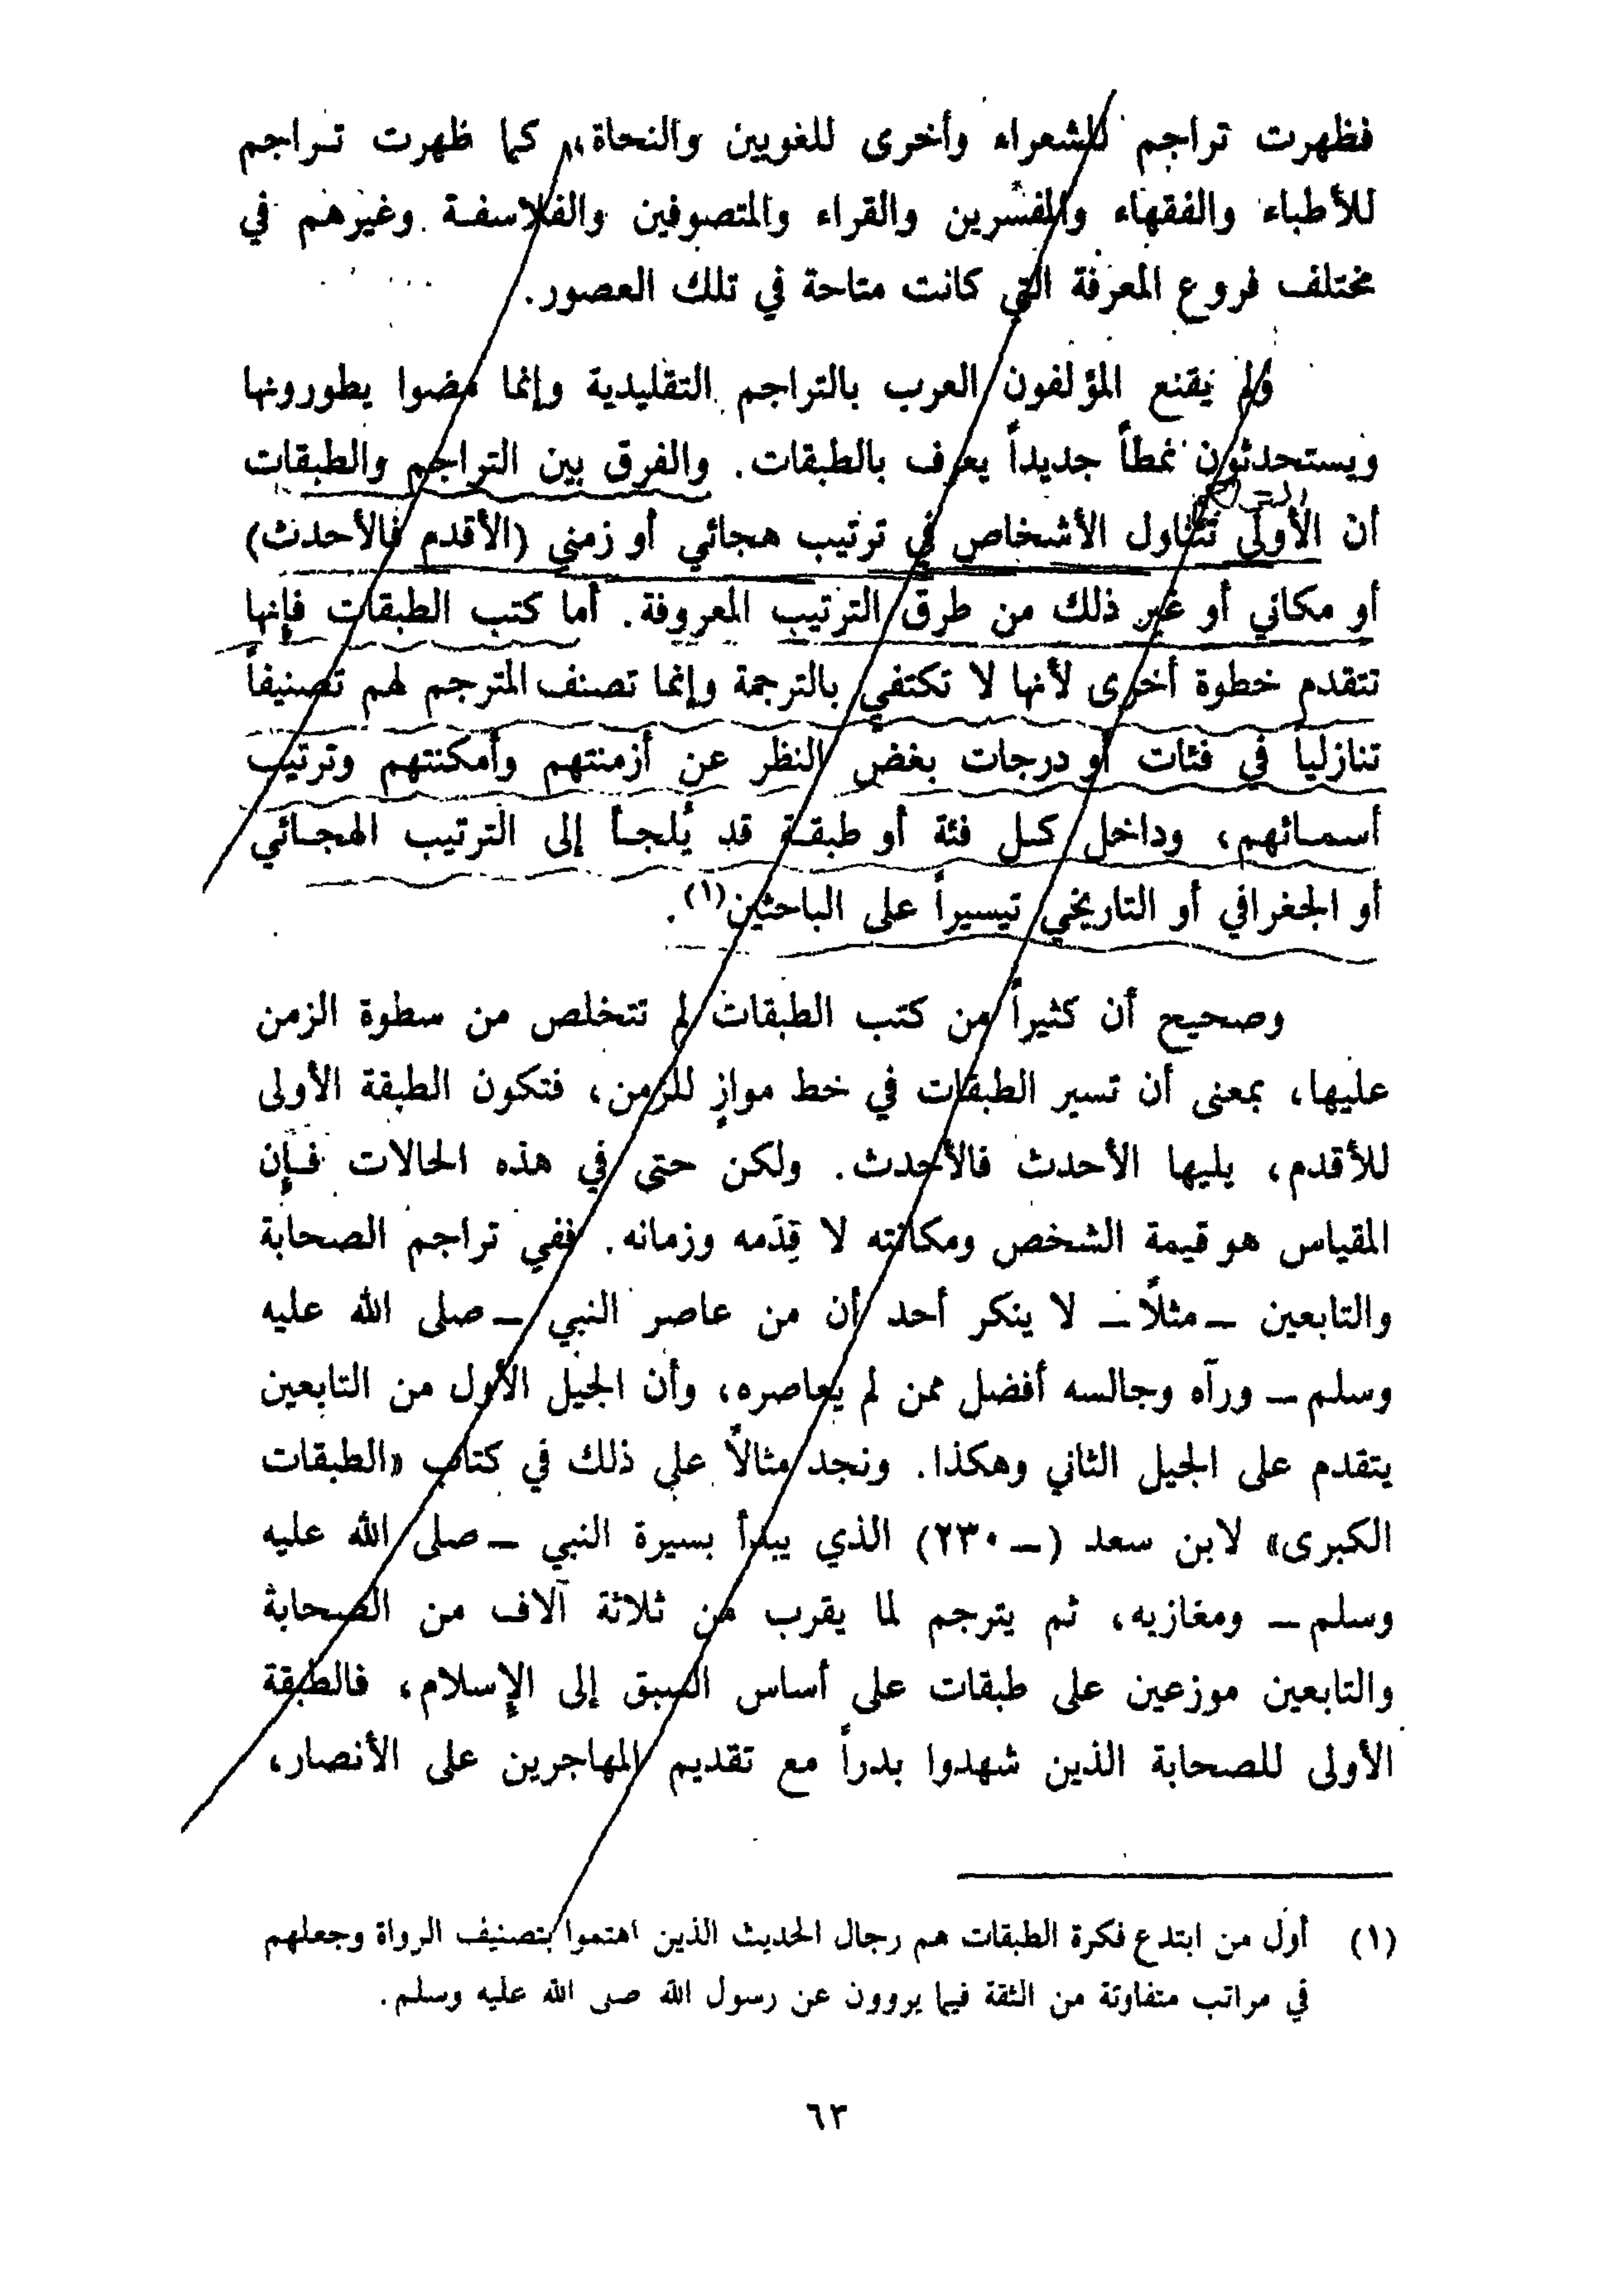 فظهرت تراجم للشعراء وأخرى للغويين والنحاة، كما ظهرت تـراجم
للأطباء والفقهاء والمفسرين والقراء والمتصوفين والفلاسفـة وغيرهم في
مختلف فروع المعرفة التي كانت متاحة في تلك العصور.
ولم يقنع المؤلفون العرب بالتراجم التقليدية وإنما مضوا يطورونها
ويستحدثون نمطاً جديداً يعرف بالطبقات. والفرق بين التراجم والطبقات
أن الأولى تتناول الأشخاص في ترتيب هجائي أو زمني (الأقدم فالأحدث)
أو مكاني أو غير ذلك من طرق الترتيب المعروفة. أما كتب الطبقات فإنها
تتقدم خطوة أخرى لأنها لا تكتفي بالترجمة وإنما تصنف المترجم لهم تصنيفاً
تنازلياً في فئات أو درجات بغض النظر عن أزمنتهم وأمكنتهم وترتيب
أسمـائهم، وداخل كـل فئة أو طبقـة قد يُلجـأ إلى الترتيب الهجـائي
أو الجغرافي أو التاريخي تيسيراً على الباحثين(١).
وصحيح أن كثيراً من كتب الطبقات لم تتخلص من سطوة الزمن
عليها، بمعنى أن تسير الطبقات في خط موازٍ للزمن، فتكون الطبقة الأولى
للأقدم، يليها الأحدث فالأحدث. ولكن حتى في هذه الحالات فـإن
المقياس هو قيمة الشخص ومكانته لا قِدَمه وزمانه. ففي تراجم الصحابة
والتابعين ــ مثلاً ــ لا ينكر أحد أن من عاصر النبي ــ صلى الله عليه
وسلم ــ ورآه وجالسه أفضل ممن لم يعاصره، وأن الجيل الأول من التابعين
يتقدم على الجيل الثاني وهكذا. ونجد مثالاً على ذلك في كتاب «الطبقات
الكبرى» لابن سعد (ــ ٢٣٠) الذي يبدأ بسيرة النبي ــ صلى الله عليه
وسلم ــ ومغازيه، ثم يترجم لما يقرب من ثلاثة آلاف من الصحابة
والتابعين موزعين على طبقات على أساس السبق إلى الإسلام، فالطبقة
الأولى للصحابة الذين شهدوا بدراً مع تقديم المهاجرين على الأنصار،
(١) أول من ابتدع فكرة الطبقات هم رجال الحديث الذين اهتموا بتصنيف الرواة وجعلهم
في مراتب متفاوتة من الثقة فيما يروون عن رسول الله صلى الله عليه وسلم.
٦٣